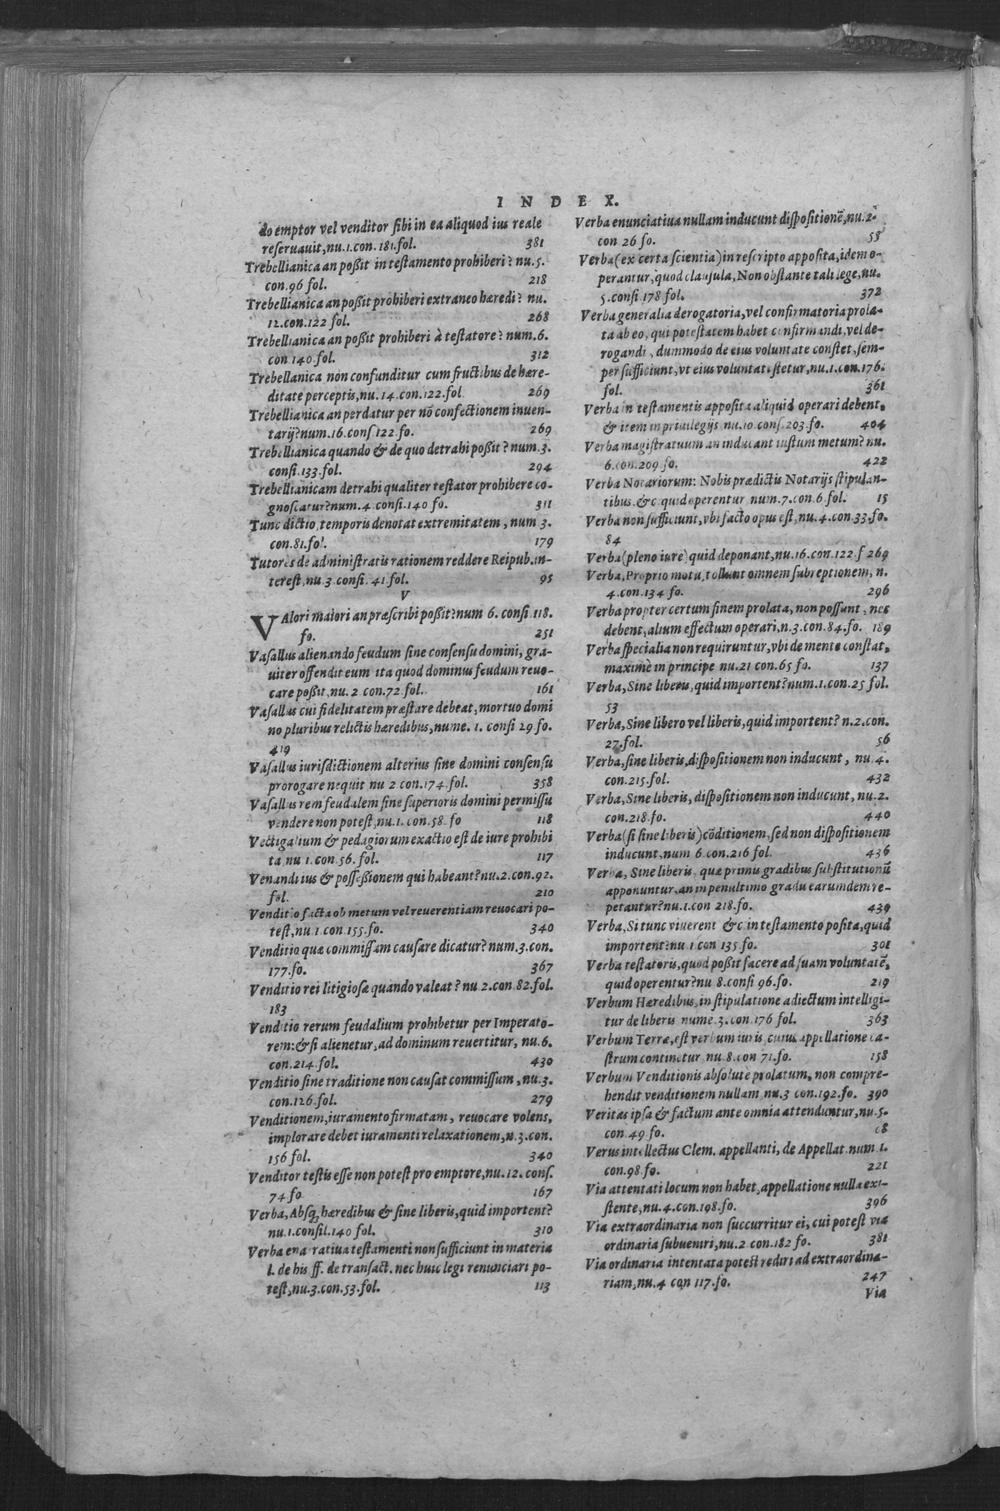 INDEX.
do emptor vel venditor sibi in ea aliquod ius reale
reseruauit, nu.1.con. 181.fol. 381
Trebellianica an poßit in testamento prohiberi? nu.5.
con.96 fol. 218
Trebellianica an poßit prohiberi extraneo hæredi? nu.
12.con.122 fol. 268
Trebellianica an poßit prohiberi à testatore? num.6.
con 140.fol. 312
Trebellianica non confunditur cum fructibus de hære-
ditate perceptis, nu. 14. con.122.fol 269
Trebellianica an perdatur per nō confectionem inuen-
tarij? num.16. cons 122 fo. 269
Trebellianica quando & de quo detrahi poßit? num.3.
consi.133.fol. 294
Trebellianicam detrahi qualiter testator prohibere co-
gnoscatur? num.4 consi.140 fo. 311
Tunc dictio, temporis denotat extremitatem, num 3.
con.81.fol. 179
Tutores de administratis rationem reddere Reipub.in-
terest, nu.3.consi. 41.fol. 95
V
VAlori maiori an præscribi poßit? num 6. consi.118.
fo. 251
Vasallus alienando feudum sine consensu domini, gra-
uiter offendit eum ita quod dominus feudum reuo-
care poßit, nu. 2 con.72.fol. 161
Vasallus cui fidelitatem præstare debeat, mortuo domi
no pluribus relictis hæredibus, nume. 1. consi 29 fo.
419
Vasallus iurisdictionem alterius sine domini consensu
prorogare nequit nu 2 con.174.fol. 358
Vasallus rem feudalem sine superioris domini permissu
vendere non potest, nu.1. con.58. fo 118
Vectigalium & pedagiorum exactio est de iure prohibi
ta nu 1. con.56. fol. 117
Venandi ius & posseßionem qui habeant? nu.2.con.92.
fol. 210
Venditio facta ob metum vel reuerentiam reuocari po-
test, nu 1 con.155.fo. 340
Venditio quæ commissam causare dicatur? num.3.con.
177.fo. 367
Venditio rei litigiosæ quando valeat? nu 2.con 82.fol.
183
Venditio rerum feudalium prohibetur per Imperato-
rem: & si alienetur, ad dominum reuertitur, nu.6.
con.214.fol. 430
Venditio sine traditione non causat commissum, nu.3.
con.126.fol. 279
Venditionem, iuramento firmatam, reuocare volens,
implorare debet iuramenti relaxationem, n.3.con.
156 fol. 340
Venditor testis esse non potest pro emptore, nu. 12. cons.
74 fo 167
Verba, Absq; hæredibus & sine liberis, quid importent?
nu.1.consil.140 fol. 310
Verba enarratiua testamenti non sufficiunt in materia
l. de his ff. de transact. nec huic legi renunciari po-
test, nu.3.con.53.fol. 113
Verba enunciatiua nullam inducunt dispositionē, nu.2.
con 26 fo. 53
Verba (ex certa scientia) in rescripto apposita, idem o-
perantur, quod clausula, Non obstante tali lege, nu.
5.consi 178 fol. 372
Verba generalia derogatoria, vel confirmatoria prola-
ta ab eo, qui potestatem habet confirmandi, vel de-
rogandi, dummodo de eius voluntate constet, sem-
per sufficiunt, vt eius voluntati stetur, nu.1.con.176.
fol. 361
Verba in testamentis apposita aliquid operari debent,
& item in priuilegijs nu.10 cons.203.fo. 404
Verba magistratuum an inducant iustum metum? nu.
6.con.209 fo. 422
Verba Notariorum: Nobis prædictis Notarijs stipulan-
tibus. &c quid operentur num.7.con.6.fol. 15
Verba non sufficiunt, vbi facto opus est, nu.4.con.33.fo.
84
Verba (pleno iure) quid deponant, nu.16.con.122.f 269
Verba, Proprio motu, tollunt omnem subreptionem, n.
4.con.134 fo. 296
Verba propter certum finem prolata, non possunt, nec
debent, alium effectum operari, n.3.con.84.fo. 189
Verba specialia non requiruntur, vbi de mente constat,
maximè in principe nu.21 con.65 fo. 137
Verba, Sine liberis, quid importent? num.1.con.25 fol.
53
Verba, Sine libero vel liberis, quid importent? n.2.con.
27.fol. 56
Verba, sine liberis, dispositionem non inducunt, nu 4.
con.215.fol. 432
Verba, Sine liberis, dispositionem non inducunt, nu.2.
con.218.fo. 440
Verba (si sine liberis) cōditionem, sed non dispositionem
inducunt, num 6.con.216 fol. 436
Verba, Sine liberis, que primis gradibus substitutionū
apponuntur, an in penultimo gradu earumdem re-
petantur? nu.1.con 218.fo. 439
Verba, Si tunc viuerent &c in testamento posita, quid
importent? nu 1 con 135 fo. 301
Verba testatoris, quod poßit facere ad suam voluntatē,
quid operentur? nu 8.consi 96.fo. 219
Verbum Hæredibus, in stipulatione adiectum intelligi-
tur de liberis nume.3.con.176 fol. 363
Verbum Terræ, est verbum iuris, cuius appellatione ca-
strum continetur, nu.8.con 71.fo. 158
Verbum Venditionis absolute prolatum, non compre-
hendit venditionem nullam, nu.3 con.192.fo. 390
Veritas ipsa & factum ante omnia attenduntur, nu.5.
con.49.fo. 08
Verus intellectus Clem. appellanti, de Appellat. num 1.
con.98.fo. 221
Via attentati locum non habet, appellatione nulla exi-
stente, nu.4.con.198.fo. 396
Via extraordinaria non succurritur ei, cui potest via
ordinaria subueniri, nu.2 con.182 fo. 381
Via ordinaria intentata potest rediri ad extraordina-
riam, nu.4 con 117.fo. 247
Via